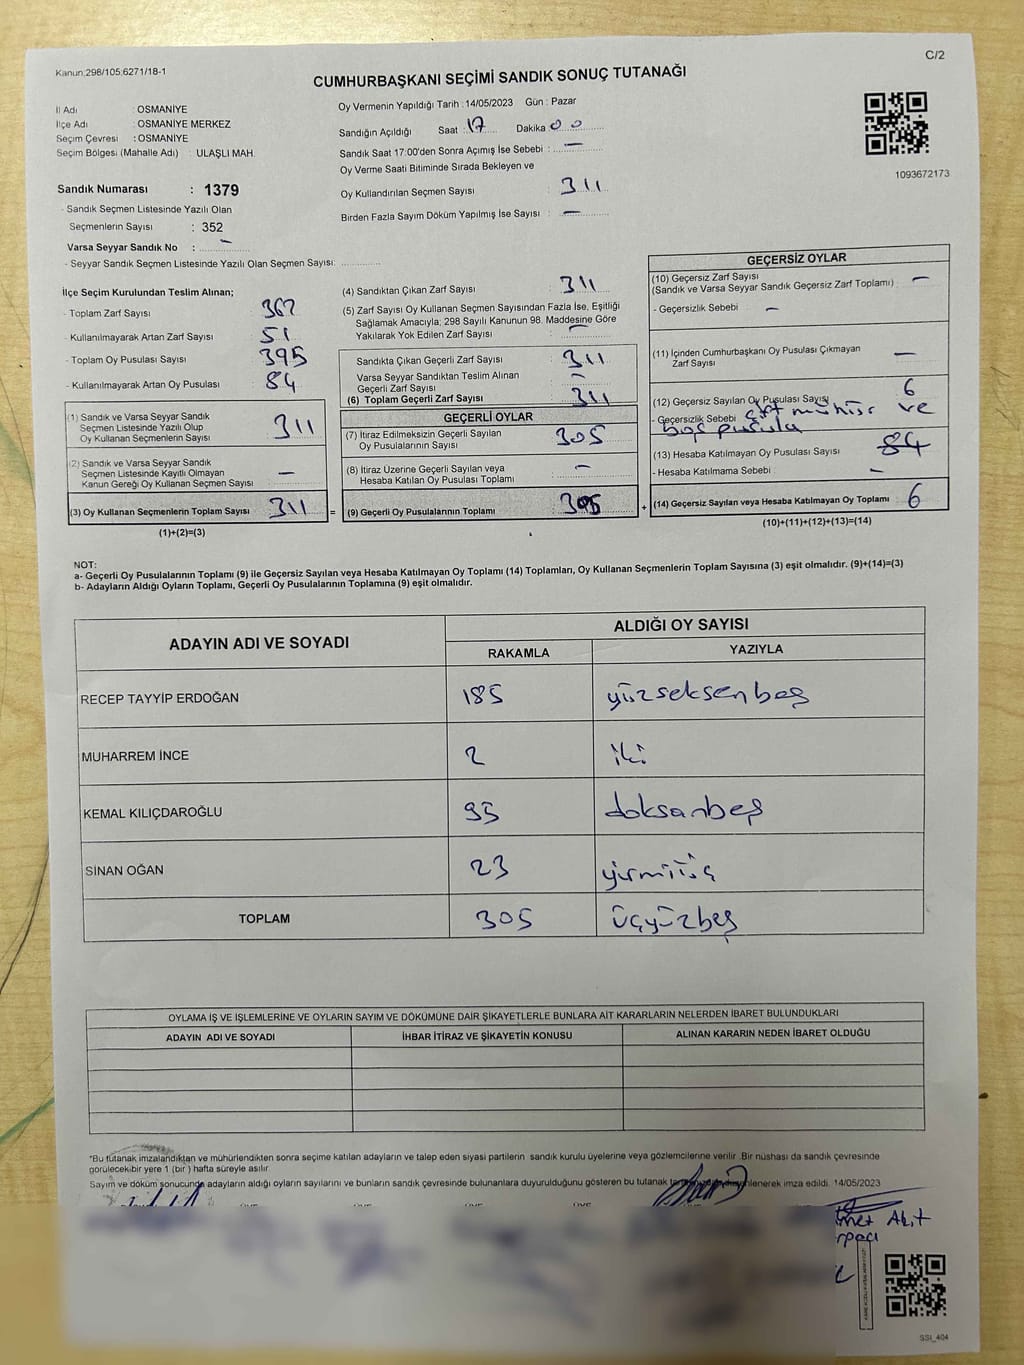 Kanun;298/105;6271/18-1
C/2
CUMHURBAŞKANI SEÇİMİ SANDIK SONUÇ TUTANAĞI
İl Adı : OSMANİYE
İlçe Adı : OSMANİYE MERKEZ
Seçim Çevresi : OSMANİYE
Seçim Bölgesi (Mahalle Adı) : ULAŞLI MAH.
Sandık Numarası : 1379
- Sandık Seçmen Listesinde Yazılı Olan
Seçmenlerin Sayısı : 352
Varsa Seyyar Sandık No : –
- Seyyar Sandık Seçmen Listesinde Yazılı Olan Seçmen Sayısı:
Oy Vermenin Yapıldığı Tarih : 14/05/2023 Gün : Pazar
Sandığın Açıldığı Saat : 17 Dakika : 00
Sandık Saat 17:00'den Sonra Açımış İse Sebebi : –
Oy Verme Saati Bitiminde Sırada Bekleyen ve
Oy Kullandırılan Seçmen Sayısı : 311
Birden Fazla Sayım Döküm Yapılmış İse Sayısı : –
1093672173
İlçe Seçim Kurulundan Teslim Alınan;
- Toplam Zarf Sayısı : 362
- Kullanılmayarak Artan Zarf Sayısı : 51
- Toplam Oy Pusulası Sayısı : 395
- Kullanılmayarak Artan Oy Pusulası : 84
(1) Sandık ve Varsa Seyyar Sandık
Seçmen Listesinde Yazılı Olup
Oy Kullanan Seçmenlerin Sayısı : 311
(2) Sandık ve Varsa Seyyar Sandık
Seçmen Listesinde Kayıtlı Olmayan
Kanun Gereği Oy Kullanan Seçmen Sayısı : –
(3) Oy Kullanan Seçmenlerin Toplam Sayısı : 311 =
(1)+(2)=(3)
(4) Sandıktan Çıkan Zarf Sayısı : 311
(5) Zarf Sayısı Oy Kullanan Seçmen Sayısından Fazla İse, Eşitliği
Sağlamak Amacıyla, 298 Sayılı Kanunun 98. Maddesine Göre
Yakılarak Yok Edilen Zarf Sayısı : –
Sandıkta Çıkan Geçerli Zarf Sayısı : 311
Varsa Seyyar Sandıktan Teslim Alınan
Geçerli Zarf Sayısı : –
(6) Toplam Geçerli Zarf Sayısı : 311
GEÇERLİ OYLAR
(7) İtiraz Edilmeksizin Geçerli Sayılan
Oy Pusulalarının Sayısı : 305
(8) İtiraz Üzerine Geçerli Sayılan veya
Hesaba Katılan Oy Pusulası Toplamı : –
(9) Geçerli Oy Pusulalarının Toplamı : 305 +
GEÇERSİZ OYLAR
(10) Geçersiz Zarf Sayısı
(Sandık ve Varsa Seyyar Sandık Geçersiz Zarf Toplamı) : –
- Geçersizlik Sebebi : –
(11) İçinden Cumhurbaşkanı Oy Pusulası Çıkmayan
Zarf Sayısı –
(12) Geçersiz Sayılan Oy Pusulası Sayısı 6
- Geçersizlik Sebebi çift mühür ve
boş pusula
(13) Hesaba Katılmayan Oy Pusulası Sayısı 84
- Hesaba Katılmama Sebebi : –
(14) Geçersiz Sayılan veya Hesaba Katılmayan Oy Toplamı : 6
(10)+(11)+(12)+(13)=(14)
NOT:
a- Geçerli Oy Pusulalarının Toplamı (9) ile Geçersiz Sayılan veya Hesaba Katılmayan Oy Toplamı (14) Toplamları, Oy Kullanan Seçmenlerin Toplam Sayısına (3) eşit olmalıdır. (9)+(14)=(3)
b- Adayların Aldığı Oyların Toplamı, Geçerli Oy Pusulalarının Toplamına (9) eşit olmalıdır.
ADAYIN ADI VE SOYADI ALDIĞI OY SAYISI
RAKAMLA YAZIYLA
RECEP TAYYİP ERDOĞAN 185 yüzseksenbeş
MUHARREM İNCE 2 iki
KEMAL KILIÇDAROĞLU 95 doksanbeş
SİNAN OĞAN 23 yirmiüç
TOPLAM 305 üçyüzbeş
OYLAMA İŞ VE İŞLEMLERİNE VE OYLARIN SAYIM VE DÖKÜMÜNE DAİR ŞİKAYETLERLE BUNLARA AİT KARARLARIN NELERDEN İBARET BULUNDUKLARI
ADAYIN ADI VE SOYADI İHBAR İTİRAZ VE ŞİKAYETİN KONUSU ALINAN KARARIN NEDEN İBARET OLDUĞU
*Bu tutanak imzalandıktan ve mühürlendikten sonra seçime katılan adayların ve talep eden siyasi partilerin sandık kurulu üyelerine veya gözlemcilerine verilir. Bir nüshası da sandık çevresinde
görülecek bir yere 1 (bir) hafta süreyle asılır.
Sayım ve döküm sonucunda adayların aldığı oyların sayılarını ve bunların sandık çevresinde bulunanlara duyurulduğunu gösteren bu tutanak düzenlenerek imza edildi. 14/05/2023
SSI_404